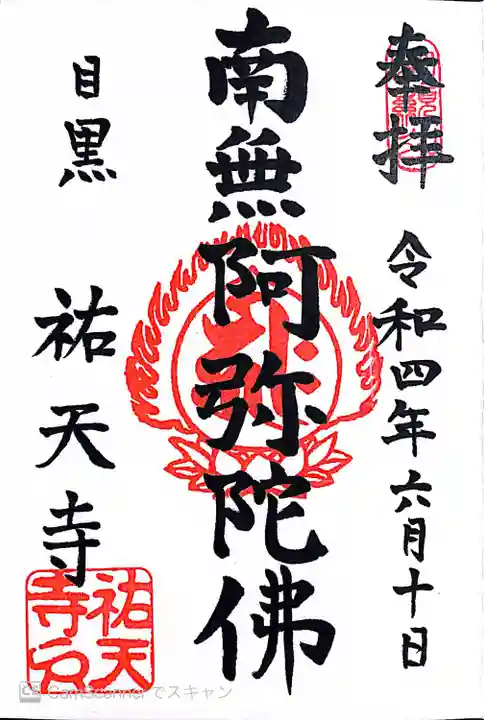 奉拝
令和四年六月十日
南無阿弥陀佛
目黒
祐天寺
祐天
寺印
CS CamScanner でスキャン